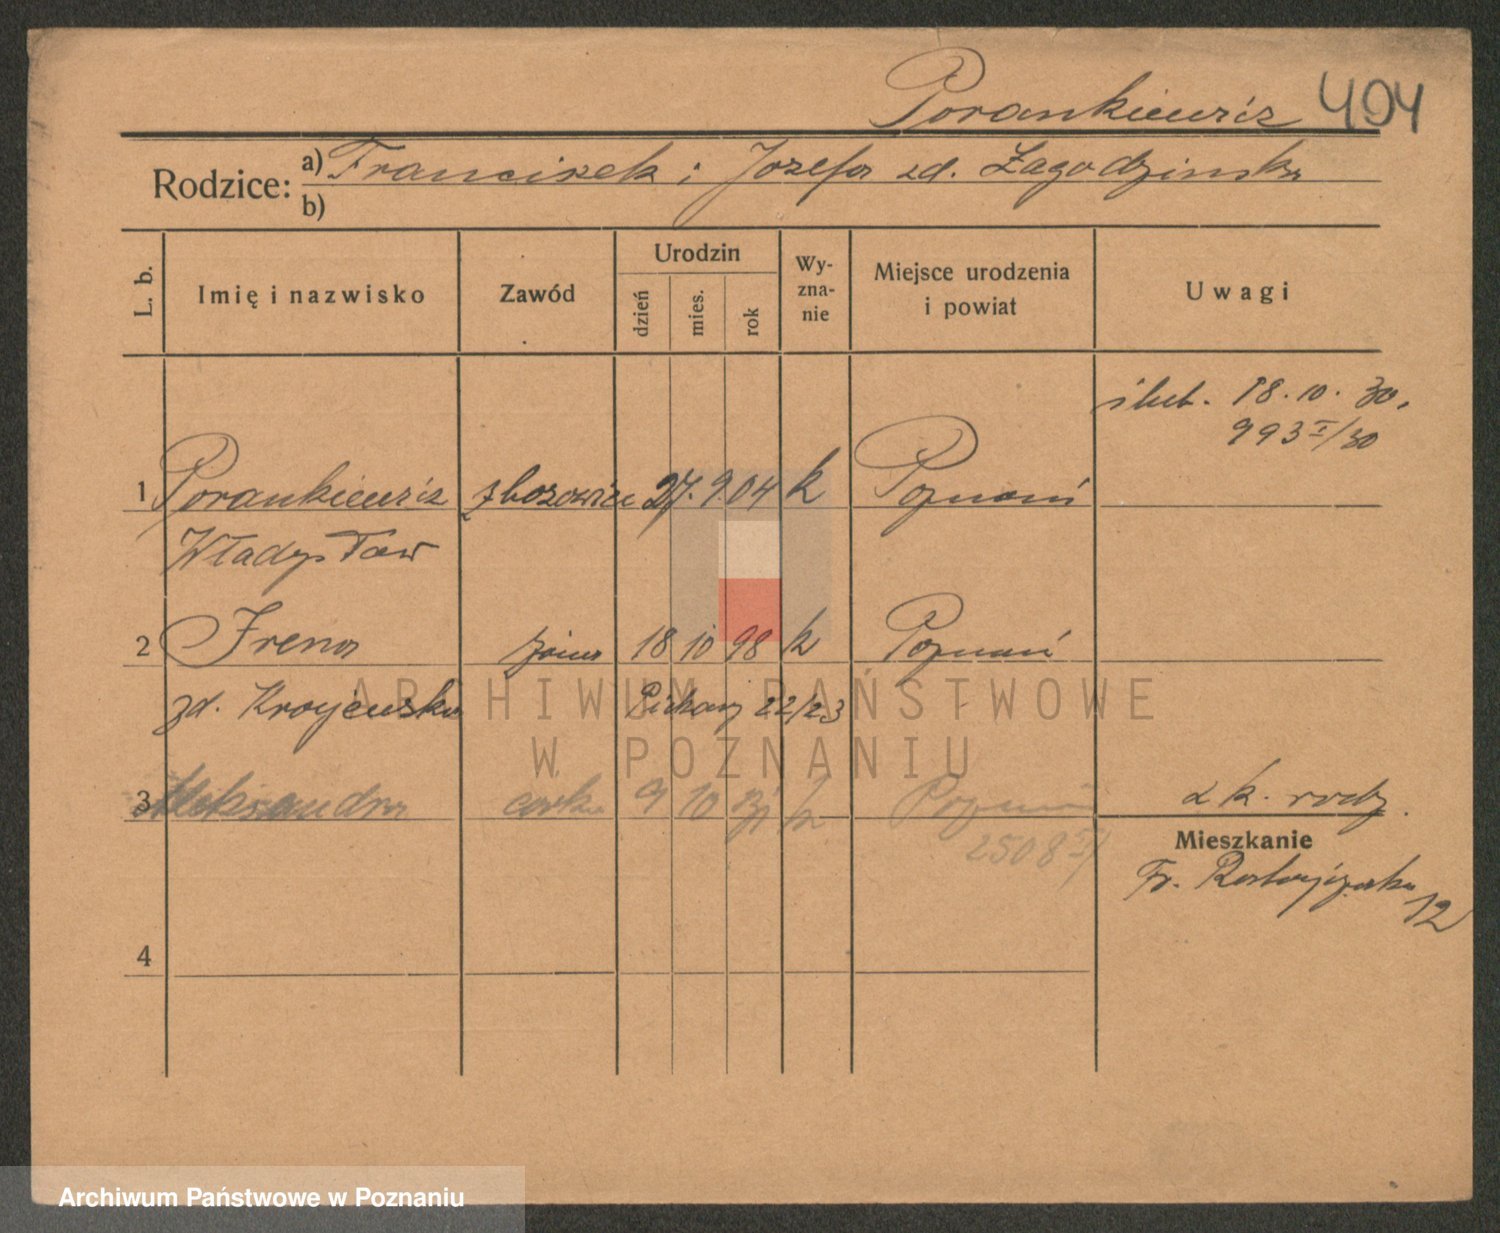 Porankiewicz 404
Rodzice: a) Franciszek i Józefa zd. Zagodzinska
b)
L. b. Imię i nazwisko Zawód Urodzin dzień mies. rok Wy-zna-nie Miejsce urodzenia i powiat Uwagi
ślub. 18.10.30.
993 I/30
1 Porankiewicz 27. 9. 04 k Poznań
Władysław
2 Irena żona 18 10 98 k Poznań
zd. Krojewska 22/23
3 Aleksandra córka 9 10 31 k Poznań
z k. rodz.
2508
Mieszkanie
Fr. Ratajczaka 12
4
ARCHIWUM PAŃSTWOWE
W POZNANIU
Archiwum Państwowe w Poznaniu